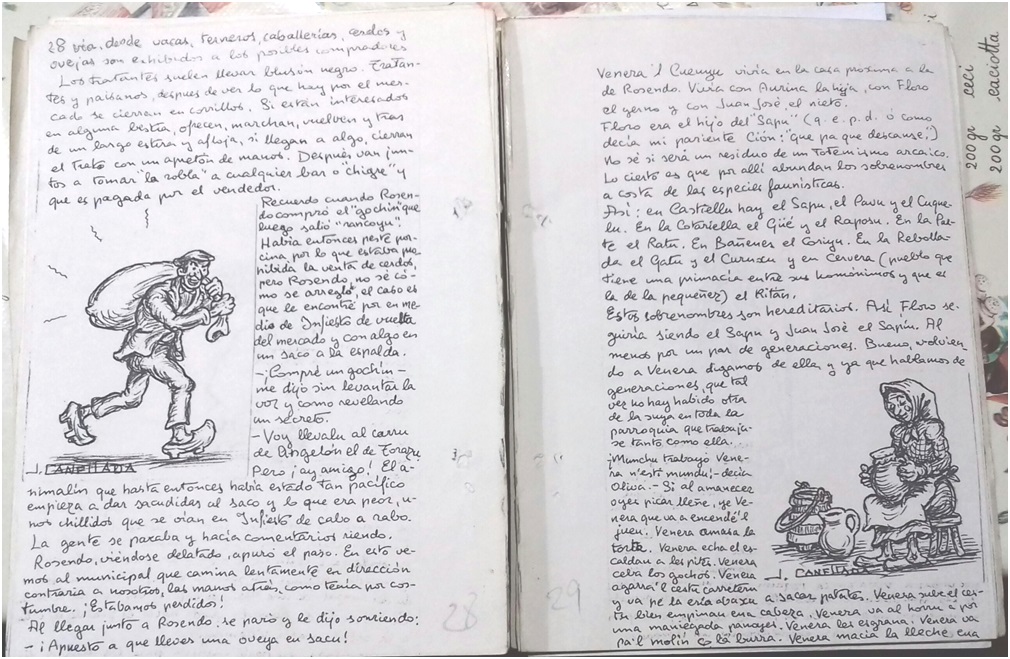 28 vía, desde vacas, terneros, caballerías, cerdos y
ovejas son exhibidos a los posibles compradores
Los tratantes suelen llevar blusón negro. Tratan-
tes y paisanos, después de ver lo que hay por el mer-
cado se cierran en corrillos. Si están interesados
en alguna bestia, ofrecen, marchan, vuelven y tras
de un largo estira y afloja, si llegan a algo, cierran
el trato con un apretón de manos. Después van jun-
tos a tomar "la robla" a cualquier bar o chigre "y
que es pagada por el vendedor.
Recuerdo cuando Rosen-
do compró el "gochín" que
luego salió "rancoyu".
Había entonces peste por-
cina, por lo que estaba pro
hibida la venta de cerdos,
pero Rosendo, no sé có-
mo se arregló, el caso es
que le encontré por en me-
dio de Infiesto de vuelta
del mercado y con algo en
un saco a la espalda.
-¡Compré un gochín-
me dijo sin levantar la
voz y como revelando
un secreto.
-Voy llevalu al carru
de Angelón el de Torazu
Pero ¡ay amigo! El a-
nimalín que hasta entonces había estado tan pacífico
empieza a dar sacudidas al saco y lo que era peor, u-
nos chillidos que se oían en Infiesto de cabo a rabo.
La gente se paraba y hacía comentarios riendo.
Rosendo, viéndose delatado, apuró el paso. En esto ve-
mos al municipal que camina lentamente en dirección
contraria a nosotros, las manos atrás, como tenía por cos-
tumbre. ¡Estábamos perdidos!
Al llegar junto a Rosendo se paró y le dijo sonriendo:
- ¡Apuesto a que lleves una oveya en sacu!
J. CANELLADA
28
Venera'l Cuenyu vivía en la casa próxima a la
de Rosendo. Vivía con Aurina la hija, con Floro
el yerno y con Juan José, el nieto.
Floro era el hijo del "Sapu" (q. e. p. d. ó como
decía mi pariente Ción: "que pa que descanse")
No sé si será un residuo de un Totemismo arcaico.
Lo cierto es que por allí abundan los sobrenombres
a costa de las especies faunísticas.
Así: en Castiellu hay el Sapu, el Pavu y el Cuque-
lu. En la Cotariella el Güé y el Raposu. En la Par-
te el Ratu. En Bañenes el Coriyu. En la Rebolla-
da el Gatu y el Curuxu y en Cervera (pueblo que
tiene una primacía entre sus homónimos y que es
la de la pequeñez) el Ritán.
Estos sobrenombres son hereditarios. Así Floro se-
guiría siendo el Sapu y Juan José el Sapín. Al
menos por un par de generaciones. Bueno, volvien-
do a Venera digamos de ella y ya que hablamos de
generaciones, que tal
vez no hay habido otra
de la suya en toda la
parroquia que trabaja-
se tanto como ella.
¡Munchu trabayó Vene-
ra n'esti mundu!- decía
Oliva.- Si al amanecer
oyes picar lleñe, ye Ve-
nera que va a encendé'l
fueu. Venera amasa la
torta. Venera echa el es-
caldau a les pites. Venera
ceba los gochos. Venera
agarra'l cestu carreteru
y va pe la ería abaxu a sacar patates. Venera sube el ces-
tu bien empinau ena cabeza. Venera va al horru a por
una maniegada panoyes. Venera les esgrana. Venera va
pa'l molín co la burra. Venera macia la lleche, ena
J. CANELLADA
29
200 gr ceci
200 gr caciotta